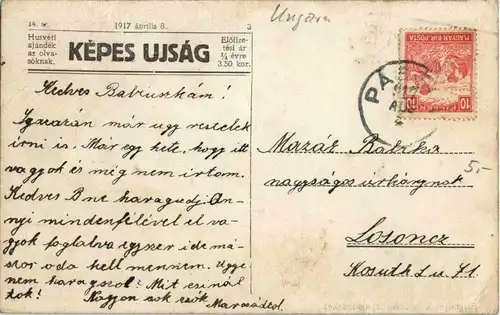 14. sz.
1917 április 8.
3
Húsvéti ajándék az olvasóknak.
KÉPES UJSÁG
Előfizetési ár ¼ évre 3.50 kor.
Ungarn
MAGYAR KIR. POSTA
10
10
PÁ
917
Kedves Babiuskám!
Igazán már ugy restelek
írni is. Már egy hete, hogy itt
vagyok és még nem irtam.
Kedves Bné haragudj. An-
nyi mindenfélével el va-
gyok foglalva egyszer ide má-
szor oda kell mennem. Ugye
nem haragszol? Mit csinál
tok! Nagyon sok csók
Marcsádtol.
Mazár
nagyságos urhölgynek
5-
Losoncz
Kosuth L u. 71.